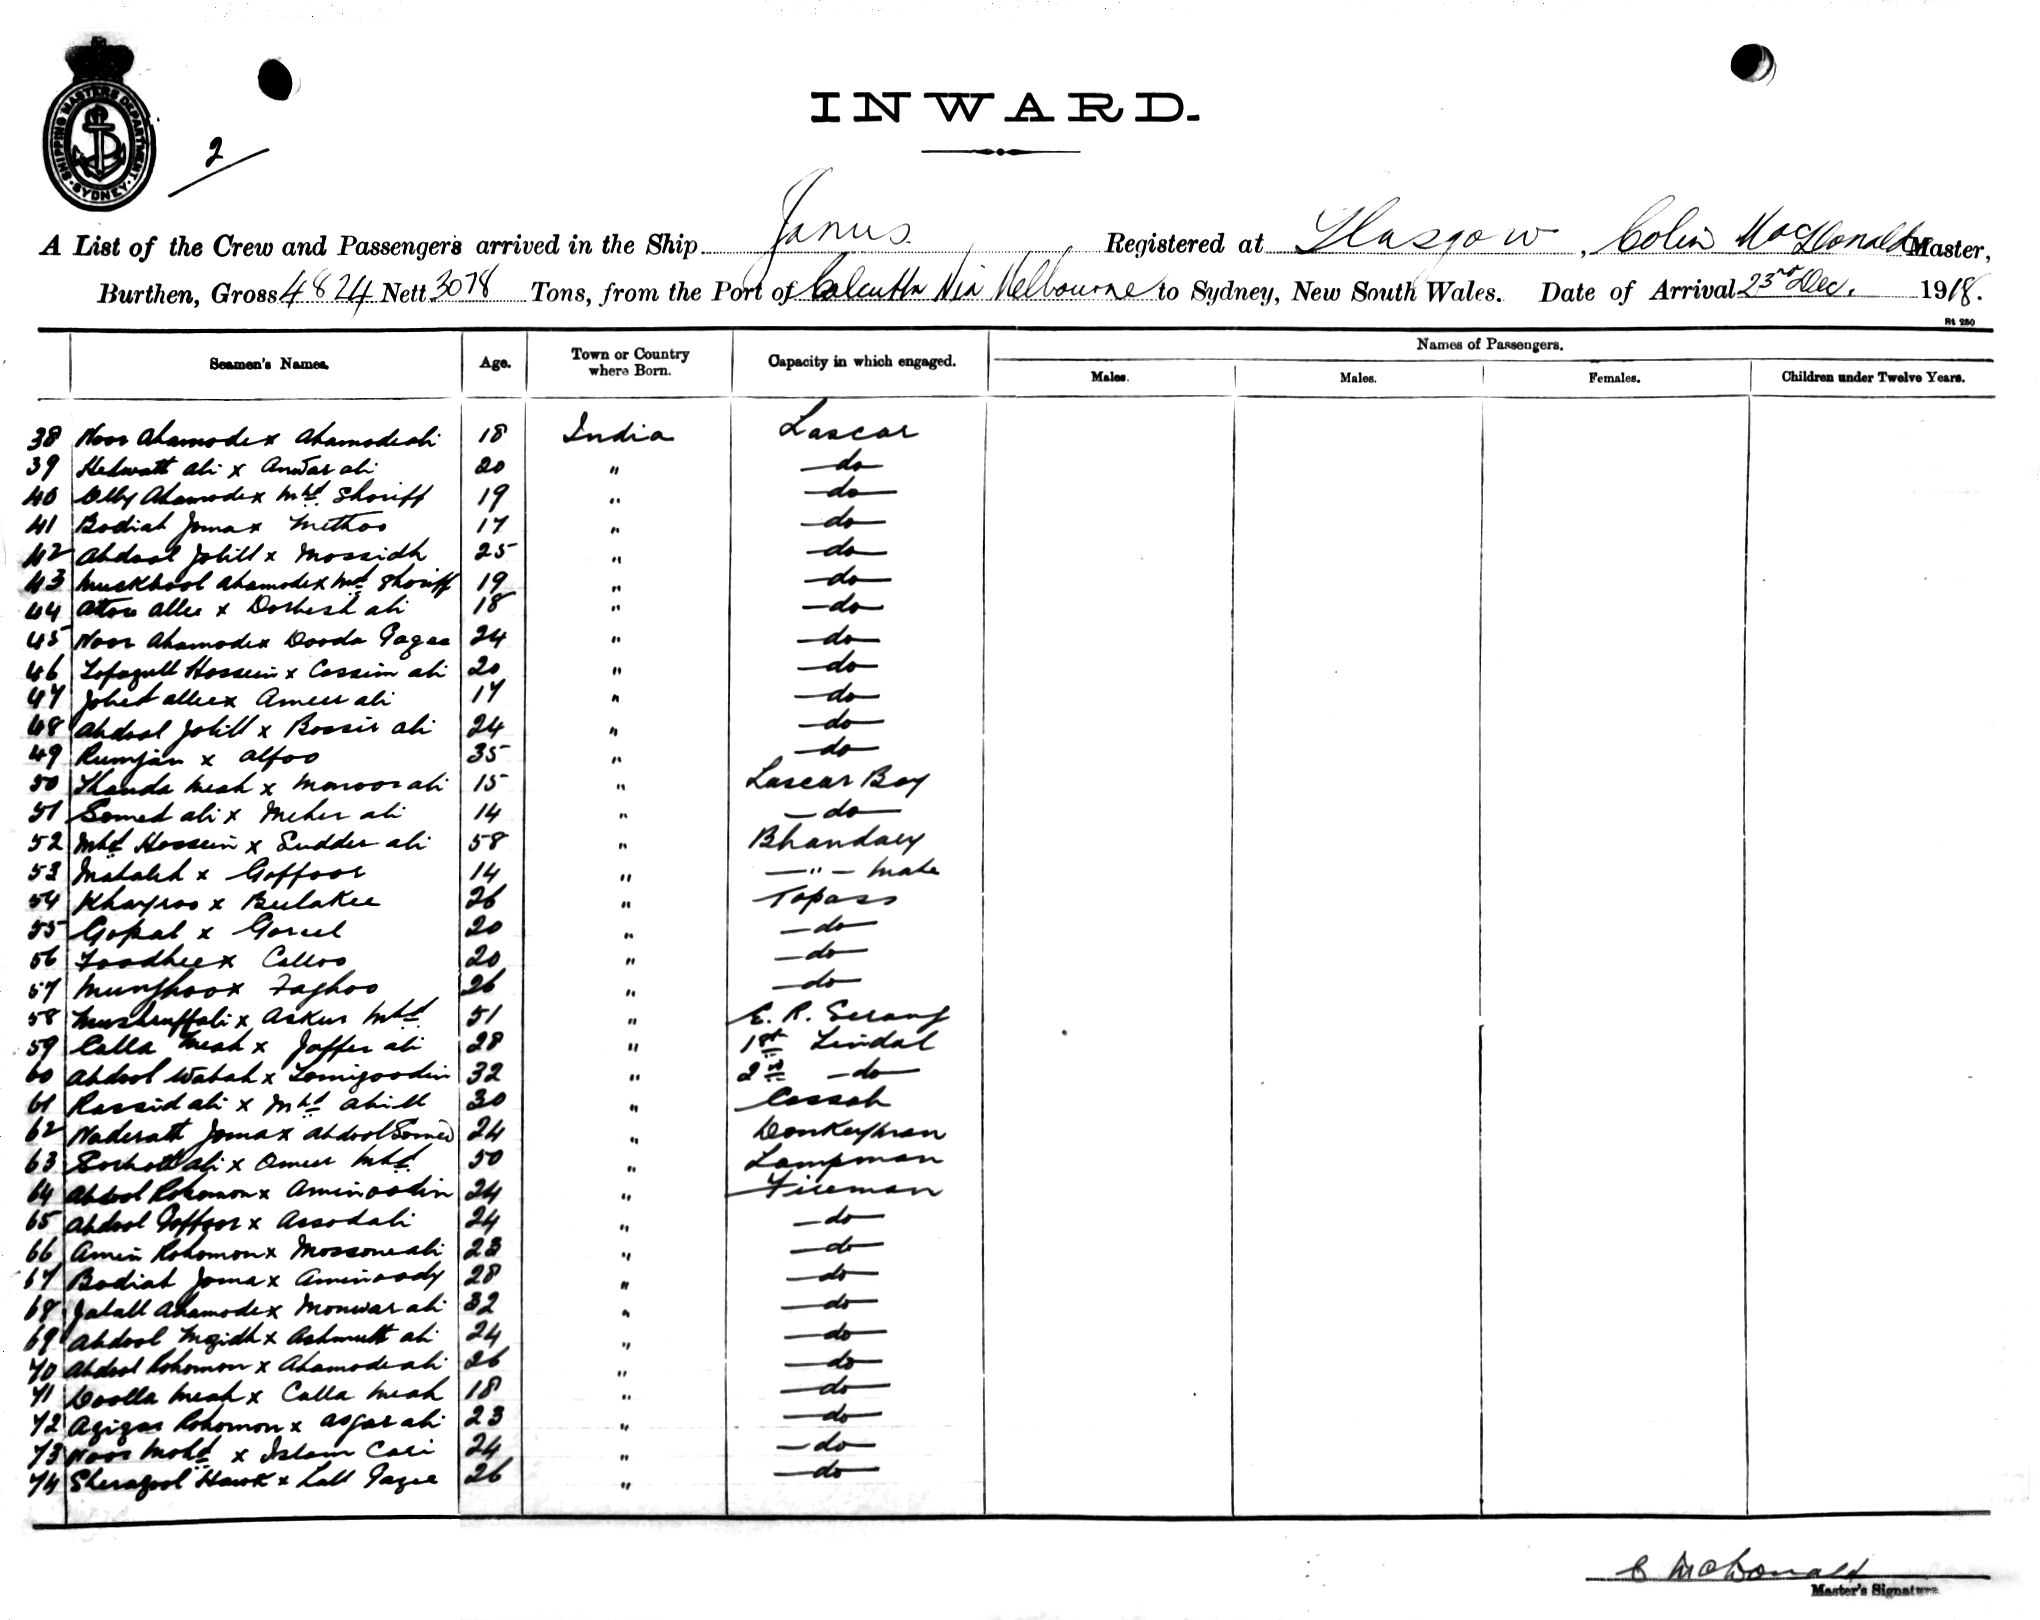 SHIPPING MASTERS DEPARTMENT
SYDNEY
2
INWARD.
A List of the Crew and Passengers arrived in the Ship Janus Registered at Glasgow, Colin MacDonald Master,
Burthen, Gross 4824 Nett 3078 Tons, from the Port of Calcutta Via Melbourne to Sydney, New South Wales. Date of Arrival 23rd Dec. 1918.
St 250
Seamen's Names. Age. Town or Country where Born. Capacity in which engaged. Names of Passengers.
Males. Males. Females. Children under Twelve Years.
38 Noor Ahamode x Ahamode ali 18 India Lascar
39 Hedwatt ali x Anwar ali 20 " do
40 Olly Ahamode x Mhd Shoriff 19 " do
41 Bodiah Joma x Methoo 17 " do
42 Abdool Jolill x Mossidh 25 " do
43 Muckbool Ahamode x Md Shoriff 19 " do
44 Allee x Dorbesh ali 18 " do
45 Noor Ahamode x Dooda Gazee 24 " do
46 Hossein x Cassim ali 20 " do
47 allee x Ameer ali 17 " do
48 Abdool Jolill x Bossir ali 24 " do
49 Rumjan x Alfoo 35 " do
50 Thanda Meah x Monoor ali 15 " Lascar Boy
51 Somed ali x Meher ali 14 " do
52 Mhd Hossein x Sudder ali 58 " Bhandary
53 x Goffoor 14 " " mate
54 Khayroo x Beelakee 26 " Topass
55 Gopal x 20 " do
56 Foodhee x Calloo 20 " do
57 Munghoo x Faghoo 26 " do
58 Mushruff ali x Askur Mhd 51 " E. R. Serang
59 Calla Meah x Joffer ali 28 " 1st Tindal
60 Abdool Wahab x 32 " 2nd do
61 Rassid ali x Mhd 30 " Cassab
62 Naderatt Joma x Abdool Somed 24 " Donkeyman
63 ali x Omeer Mhd 50 " Lampman
64 Abdool Rohomon x Aminoodin 24 " Fireman
65 Abdool Goffoor x Assod ali 24 " do
66 Amin Rohomon x ali 23 " do
67 Bodiah Joma x Aminoody 28 " do
68 Jalall Ahamode x Monwar ali 32 " do
69 Abdool x Ashmutt ali 24 " do
70 Abdool Rohomon x Ahamode ali 26 " do
71 Doolla Meah x Calla Meah 18 " do
72 Azizar Rohomon x Asgar ali 23 " do
73 Noor Mohd x Islam Cari 24 " do
74 Sherazool Hawk x Lall Gazee 26 " do
C McDonald
Master's Signature